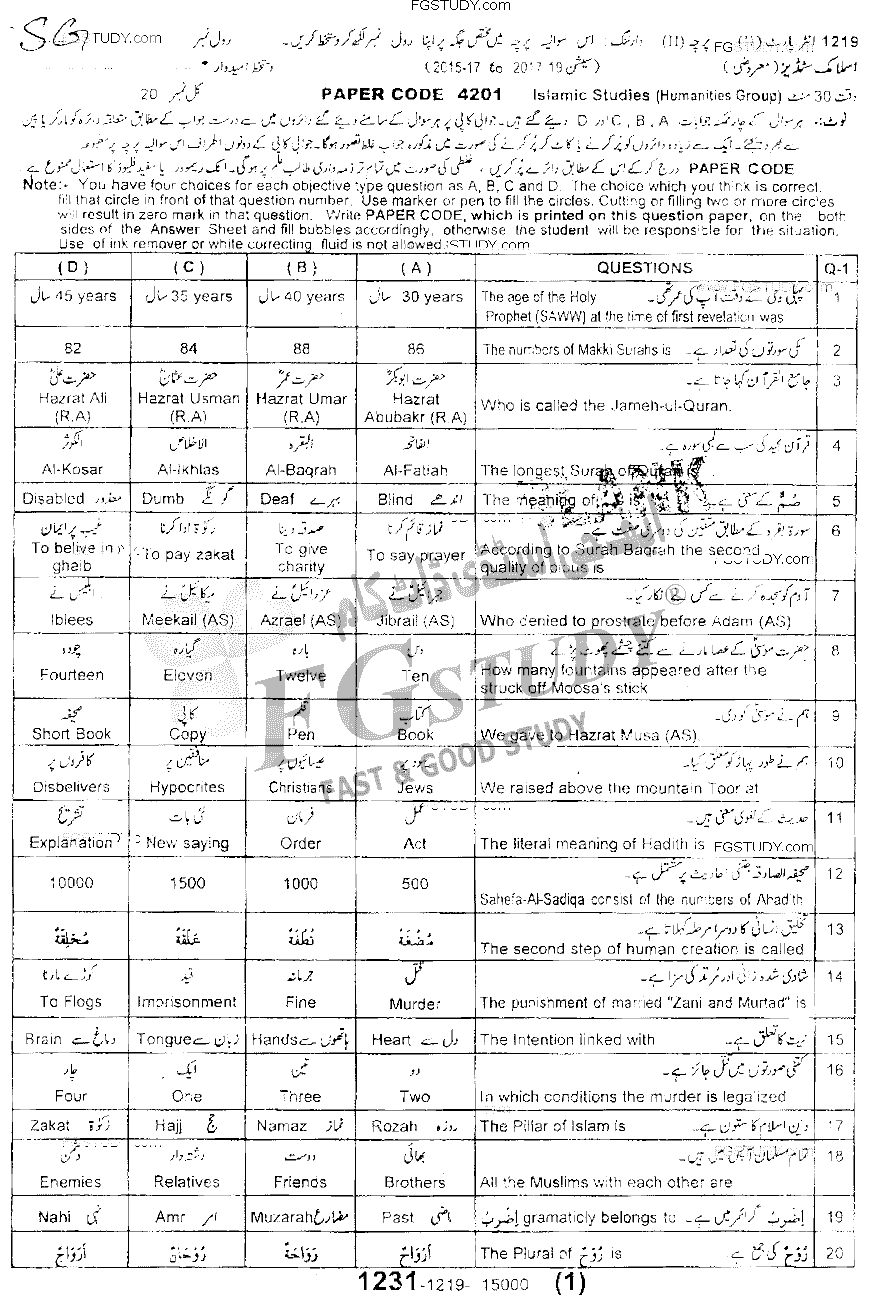 FGSTUDY.com
FGSTUDY.com رول نمبر وارننگ: اس سوالیہ پرچہ میں مختص جگہ پر اپنا رول نمبر لکھ کر دستخط کریں۔ پرچہ (II) انٹر پارٹ (II) 1219
دستخط امیدوار (سیشن 19-2017 to 2015-17) اسلامک سٹڈیز (معروضی)
کل نمبر 20 PAPER CODE 4201 Islamic Studies (Humanities Group) وقت 30 منٹ
نوٹ:- ہر سوال کے چار ممکنہ جوابات A ، B ، C اور D دیئے گئے ہیں۔ جوابی کاپی پر ہر سوال کے سامنے دیئے گئے دائروں میں سے درست جواب کے مطابق متعلقہ دائرہ کو مارکر یا پین
سے بھر دیجئے۔ ایک سے زیادہ دائروں کو پُر کرنے یا کاٹ کر پُر کرنے کی صورت میں مذکورہ جواب غلط تصور ہوگا۔ جوابی کاپی کے دونوں اطراف اس سوالیہ پرچہ پر مطبوعہ
PAPER CODE درج کر کے اس کے مطابق دائرے پُر کریں، غلطی کی صورت میں تمام تر ذمہ داری طالب علم پر ہوگی۔ انک ریموور یا سفید فلیوڈ کا استعمال ممنوع ہے
Note:- You have four choices for each objective type question as A, B, C and D. The choice which you think is correct,
fill that circle in front of that question number. Use marker or pen to fill the circles. Cutting or filling two or more circles
will result in zero mark in that question. Write PAPER CODE, which is printed on this question paper, on the both
sides of the Answer Sheet and fill bubbles accordingly, otherwise the student will be responsible for the situation.
Use of ink remover or white correcting fluid is not allowed.
(D) (C) (B) (A) QUESTIONS Q-1
45 years سال 35 years سال 40 years سال 30 years سال The age of the Holy پہلی وحی کے وقت آپ کی عمر تھی۔ 1
Prophet (SAWW) at the time of first revelation was
82 84 88 86 The numbers of Makki Surahs is مکی سورتوں کی تعداد ہے۔ 2
حضرت علیؓ حضرت عثمانؓ حضرت عمرؓ حضرت ابوبکرؓ جامع القرآن کہا جاتا ہے۔ 3
Hazrat Ali (R.A) Hazrat Usman (R.A) Hazrat Umar (R.A) Hazrat Abubakr (R.A) Who is called the Jameh-ul-Quran.
الکوثر الاخلاص البقرہ الفاتحہ قرآن مجید کی سب سے لمبی سورہ ہے۔ 4
Al-Kosar Al-Ikhlas Al-Baqrah Al-Fatiah The longest Surah of Quran is
Disabled معذور Dumb گونگے Deaf بہرے Blind اندھے The meaning of صُمٌّ is صُمٌّ کے معنی ہے۔ 5
غیب پر ایمان زکوٰۃ ادا کرنا صدقہ دینا نماز قائم کرنا سورۃ بقرہ کے مطابق متقین کی دوسری صفت ہے۔ 6
To belive in ghaib To pay zakat To give charity To say prayer According to Surah Baqrah the second quality of pious is
FGSTUDY.com
ابلیس نے میکائیل نے عزرائیل نے جبرائیل نے آدم کو سجدہ کرنے سے کس نے انکار کیا۔ 7
Iblees Meekail (AS) Azrael (AS) Jibrail (AS) Who denied to prostrate before Adam (AS)
چودہ گیارہ بارہ دس حضرت موسیٰ کے عصا مارنے سے کتنے چشمے پھوٹ پڑے 8
Fourteen Eleven Twelve Ten How many fountains appeared after the struck off Moosa's stick
صحیفہ کاپی قلم کتاب ہم نے موسیٰ کو دی۔ 9
Short Book Copy Pen Book We gave to Hazrat Musa (AS)
کافروں پر منافقین پر عیسائیوں پر یہود پر ہم نے طور پہاڑ کو معلق کیا۔ 10
Disbelivers Hypocrites Christians Jews We raised above the mountain Toor at
تشریح نئی بات فرمان عمل حدیث کے لغوی معنی ہیں۔ 11
Explanation New saying Order Act The literal meaning of Hadith is FGSTUDY.com
10000 1500 1000 500 صحیفہ الصادقہ جتنی احادیث پر مشتمل ہے۔ 12
Sahefa-Al-Sadiqa consist of the numbers of Ahadith
مُخَلَّقَةٌ عَلَقَةٌ نُطْفَةٌ مُضْغَةٌ تخلیق انسانی کا دوسرا مرحلہ کہلاتا ہے۔ 13
The second step of human creation is called
کوڑے مارنا قید جرمانہ قتل شادی شدہ زانی اور مرتد کی سزا ہے۔ 14
To Flogs Imprisonment Fine Murder The punishment of married "Zani and Murtad" is
Brain دماغ سے Tongue زبان سے Hands ہاتھوں سے Heart دل سے The Intention linked with نیت کا تعلق ہے۔ 15
چار ایک تین دو کتنی صورتوں میں قتل جائز ہے۔ 16
Four One Three Two In which conditions the murder is legalized
Zakat زکوٰۃ Hajj حج Namaz نماز Rozah روزہ The Pillar of Islam is دین اسلام کا ستون ہے۔ 17
دشمن رشتہ دار دوست بھائی تمام مسلمان آپس میں ہیں۔ 18
Enemies Relatives Friends Brothers All the Muslims with each other are
Nahi نہی Amr امر Muzarah مضارع Past ماضی اِضْرِبْ gramaticly belongs to اِضْرِبْ گرائمر میں ہے۔ 19
أَزْوَاجٌ رُوْحَانٌ رَوَاحَةٌ أَرْوَاحٌ The Plural of رُوْحٌ is رُوْحٌ کی جمع ہے 20
FGSTUDY
FAST & GOOD STUDY
1231-1219- 15000 (1)